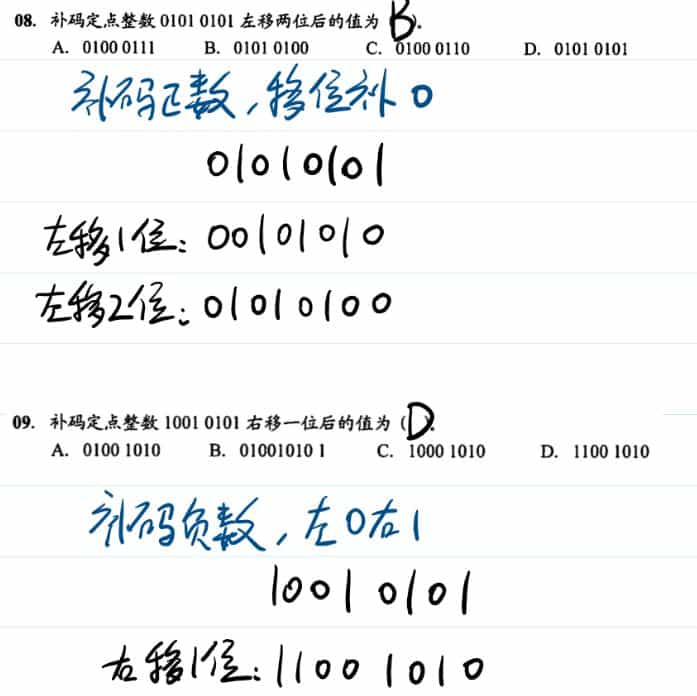 08. 补码定点整数 0101 0101 左移两位后的值为 B).
A. 0100 0111 B. 0101 0100 C. 0100 0110 D. 0101 0101
补码正数,移位补0
01010101
左移1位: 00101010
左移2位: 01010100
09. 补码定点整数 1001 0101 右移一位后的值为 (D).
A. 0100 1010 B. 01001010 1 C. 1000 1010 D. 1100 1010
补码负数,左0右1
1001 0101
右移1位: 1100 1010